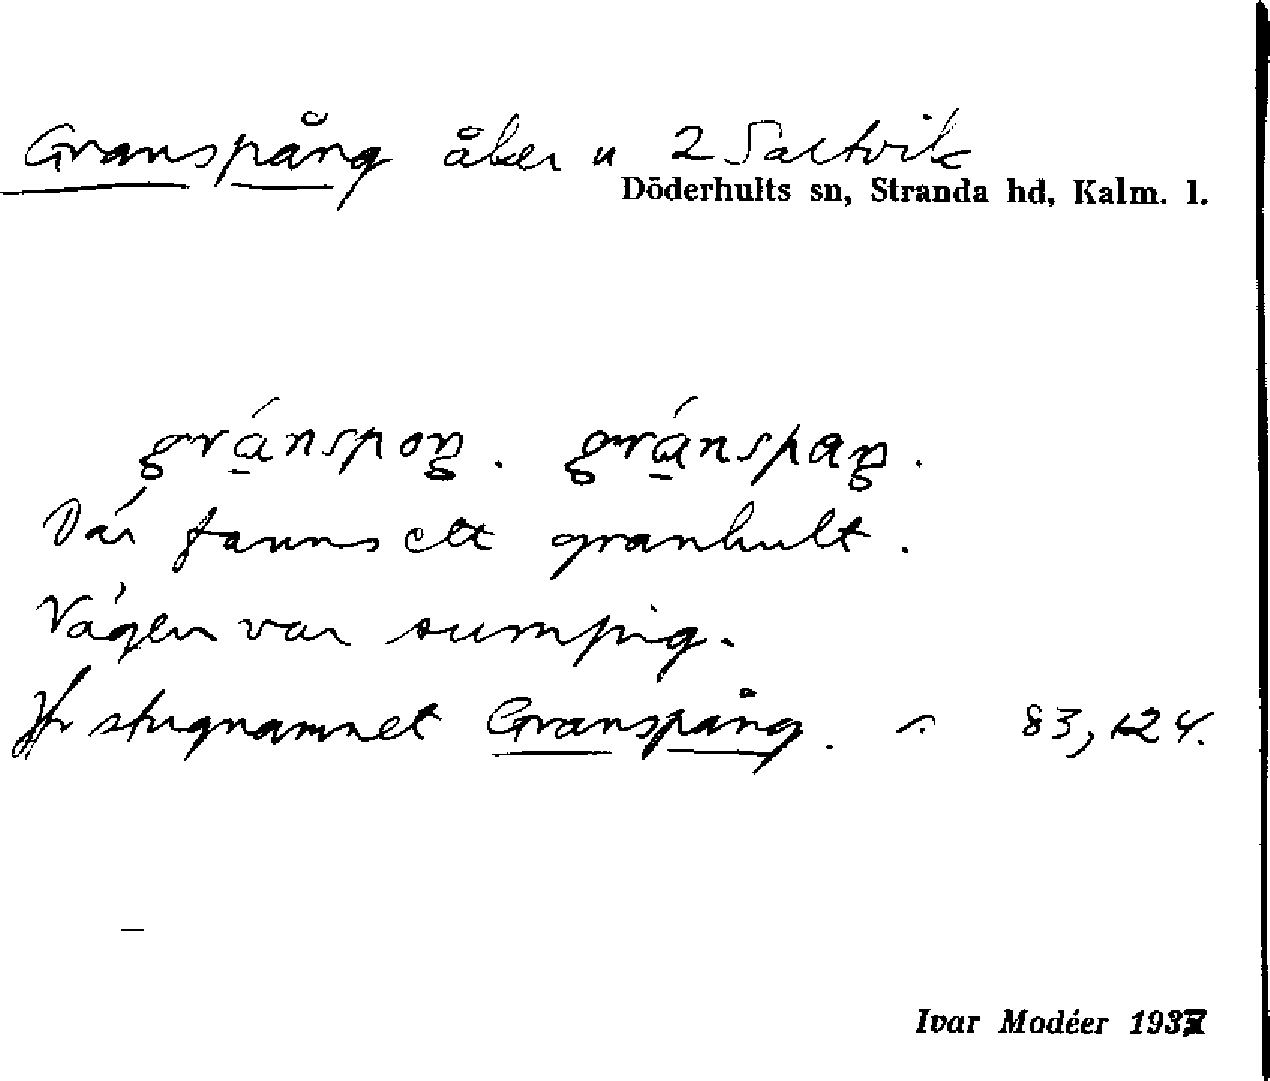 Granspång åker u 2 Saltvik
Döderhults sn, Stranda hd, Kalm. l.
gránspoŋ. gránspaŋ.
Där fanns ett granhult.
Vägen var sumpig.
Jfr stugnamnet Granspång. 83,124.
Ivar Modéer 1937